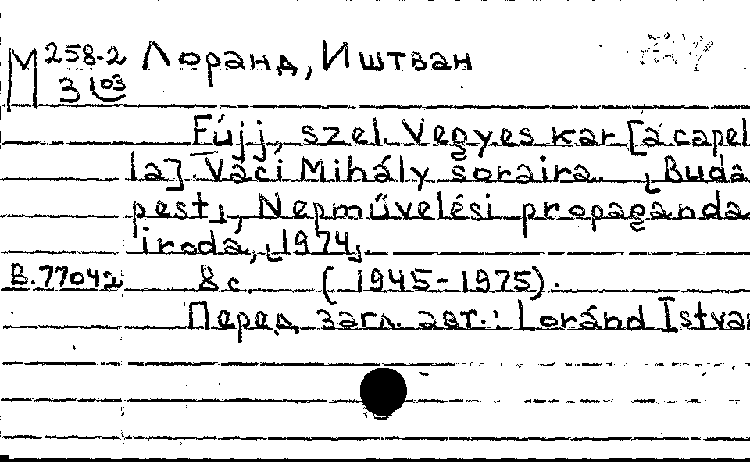 М 258-2 Лоранд, Иштван
3 103
Fújj, szel. Vegyes kar [a capel
la] Váci Mihály soraira. [Buda
pest], Nepművelési propaganda
iroda, [1974].
В.77042 8 с. (1945-1975).
Перед загл. авт.: Loránd Istvan